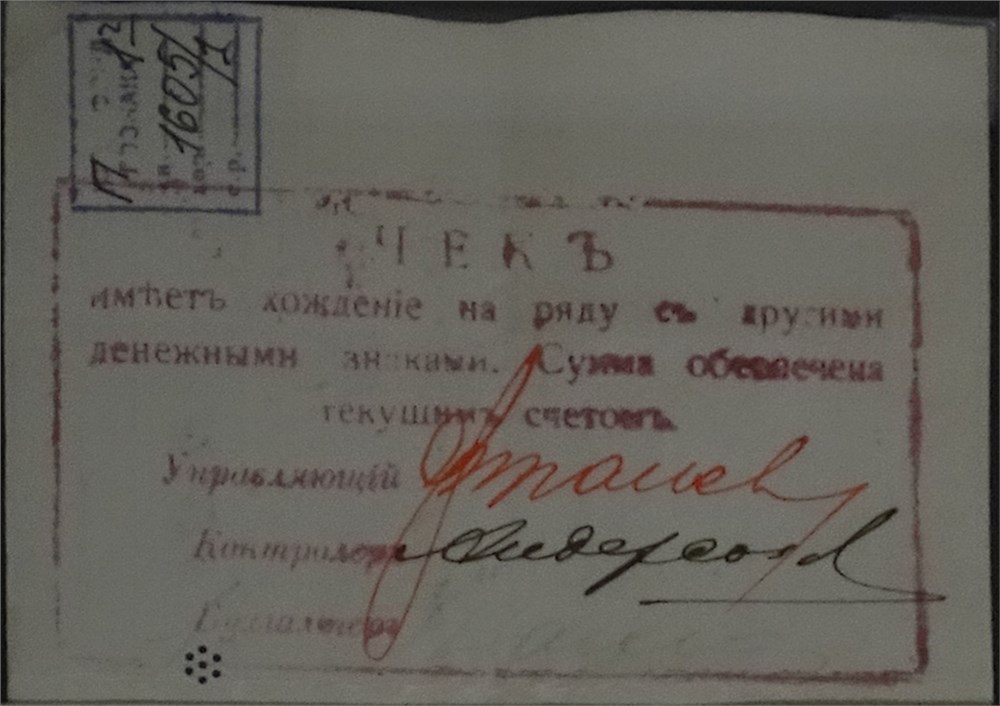 1605/1
ЧЕКЪ
имѣетъ хожденіе на ряду съ другими
денежными знаками. Сумма обезпечена
текущимъ счетомъ.
Управляющій
Контролеръ
Бухгалтеръ